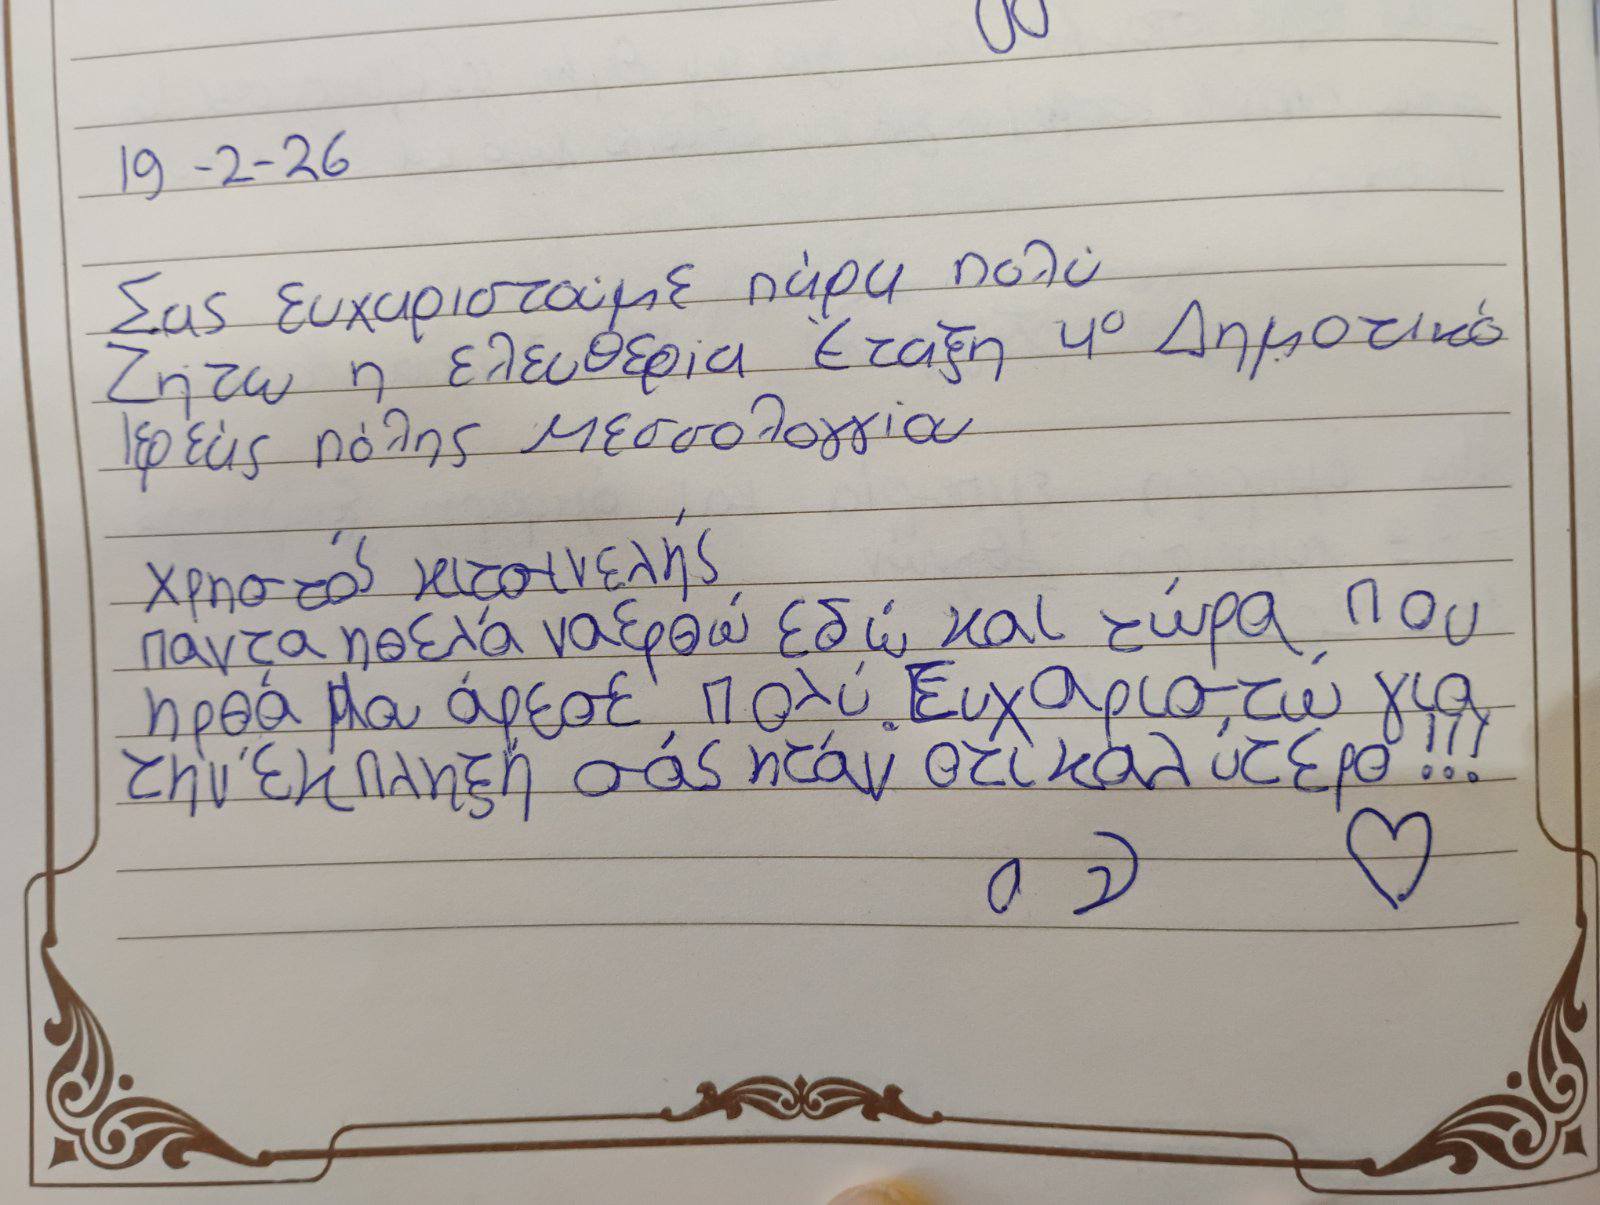 19-2-26
Σας ευχαριστούμε πάρα πολύ
Ζήτω η ελευθερία Έταξη 4ο Δημοτικό
Ιερεάς πόλης Μεσσολογγίου
χρηστός
παντα ηθελά ναερθώ εδώ και τώρα που
ηρθά μου άρεσε πολύ. Ευχαριστώ για
την έκπληξή σάς ητάν οτι καλύτερο!!!